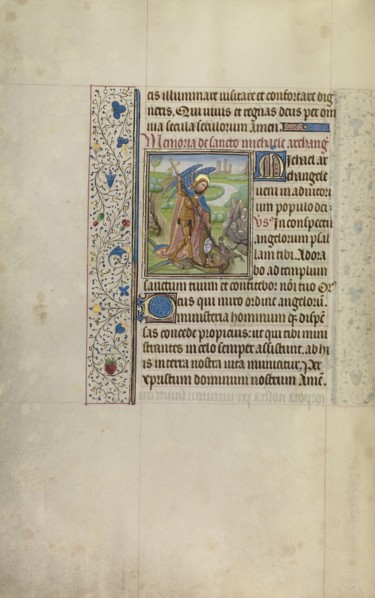 cis illuminare uisitare et confortare dig
neris. Qui uiuis et regnas deus per om
nia secula seculorum Amen.
Memoria de sancto michaele archang
Michael ar
changele
ueni in adiutori
um populo dei
Vs In conspectu
angelorum psal
lam tibi. Adora
bo ad templum
sanctum tuum et confitebor noi tuo Or
Deus qui miro ordine angeloru
ministeria hominum q dispe
sas concede propicius: ut qui tibi mini
strantes in celo semper assistunt. ab hi
is in terra nostra uita muniatur. Per
xpristum dominum nostrum Ame.